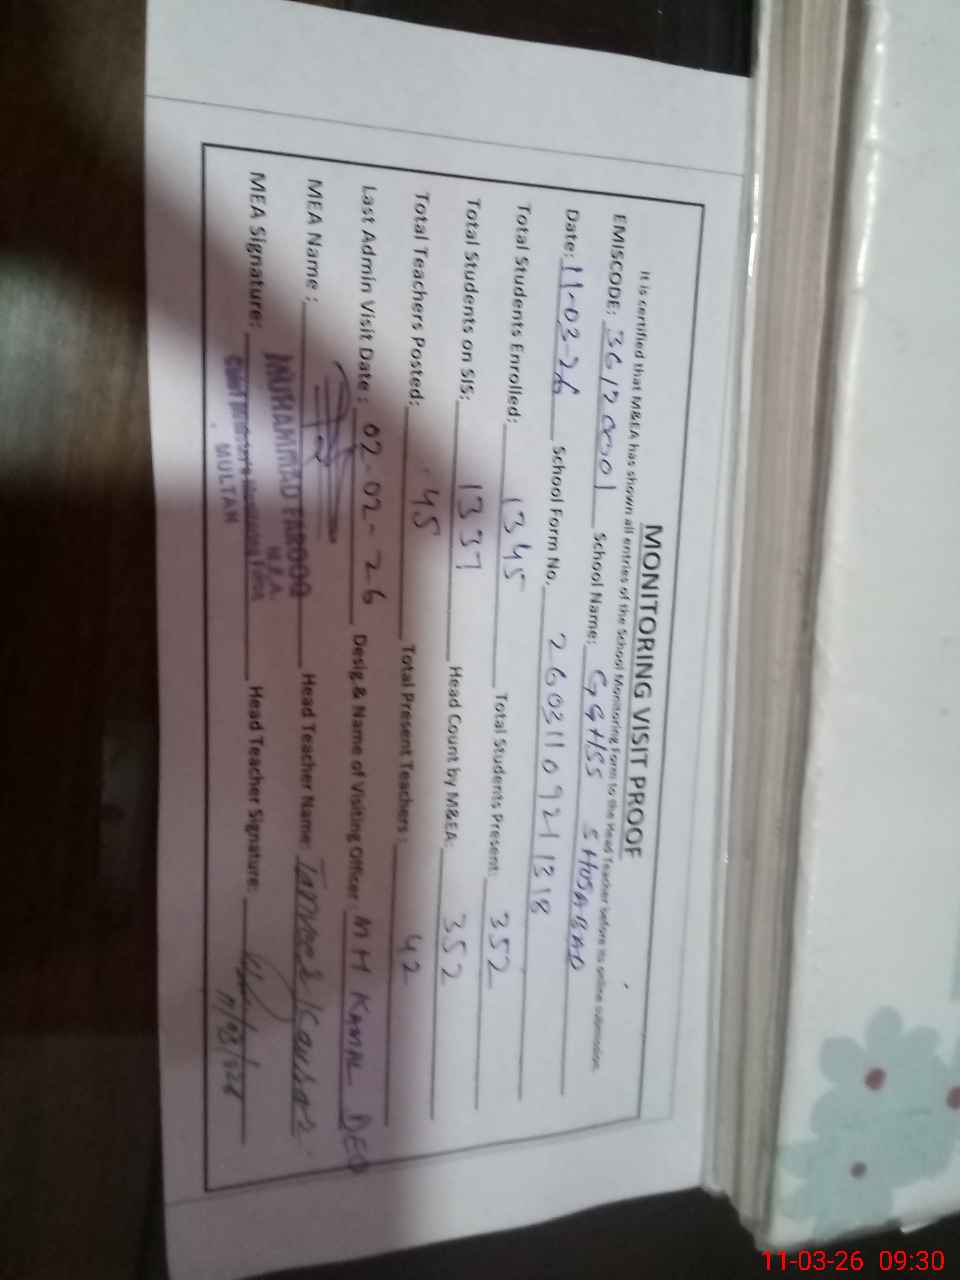 MONITORING VISIT PROOF
It is certified that M&EA has shown all entries of the School Monitoring Form to the Head Teacher before its online submission.
EMISCODE: 36120001 School Name: GGHSS SHUJABAD
Date: 11-03-26 School Form No. 2603110921318
Total Students Enrolled: 1345 Total Students Present: 352
Total Students on SIS: 1337 Head Count by M&EA: 352
Total Teachers Posted: 45 Total Present Teachers: 42
Last Admin Visit Date: 02-02-26 Desig.& Name of Visiting Officer M H KAMAL DEO
MEA Name: Head Teacher Name: Tanveer Kausar
MUHAMMAD FAROOQ
M.E.A.
MEA Signature: Head Teacher Signature:
Chief Minister's Monitoring Force
MULTAN
11-03-26 09:30